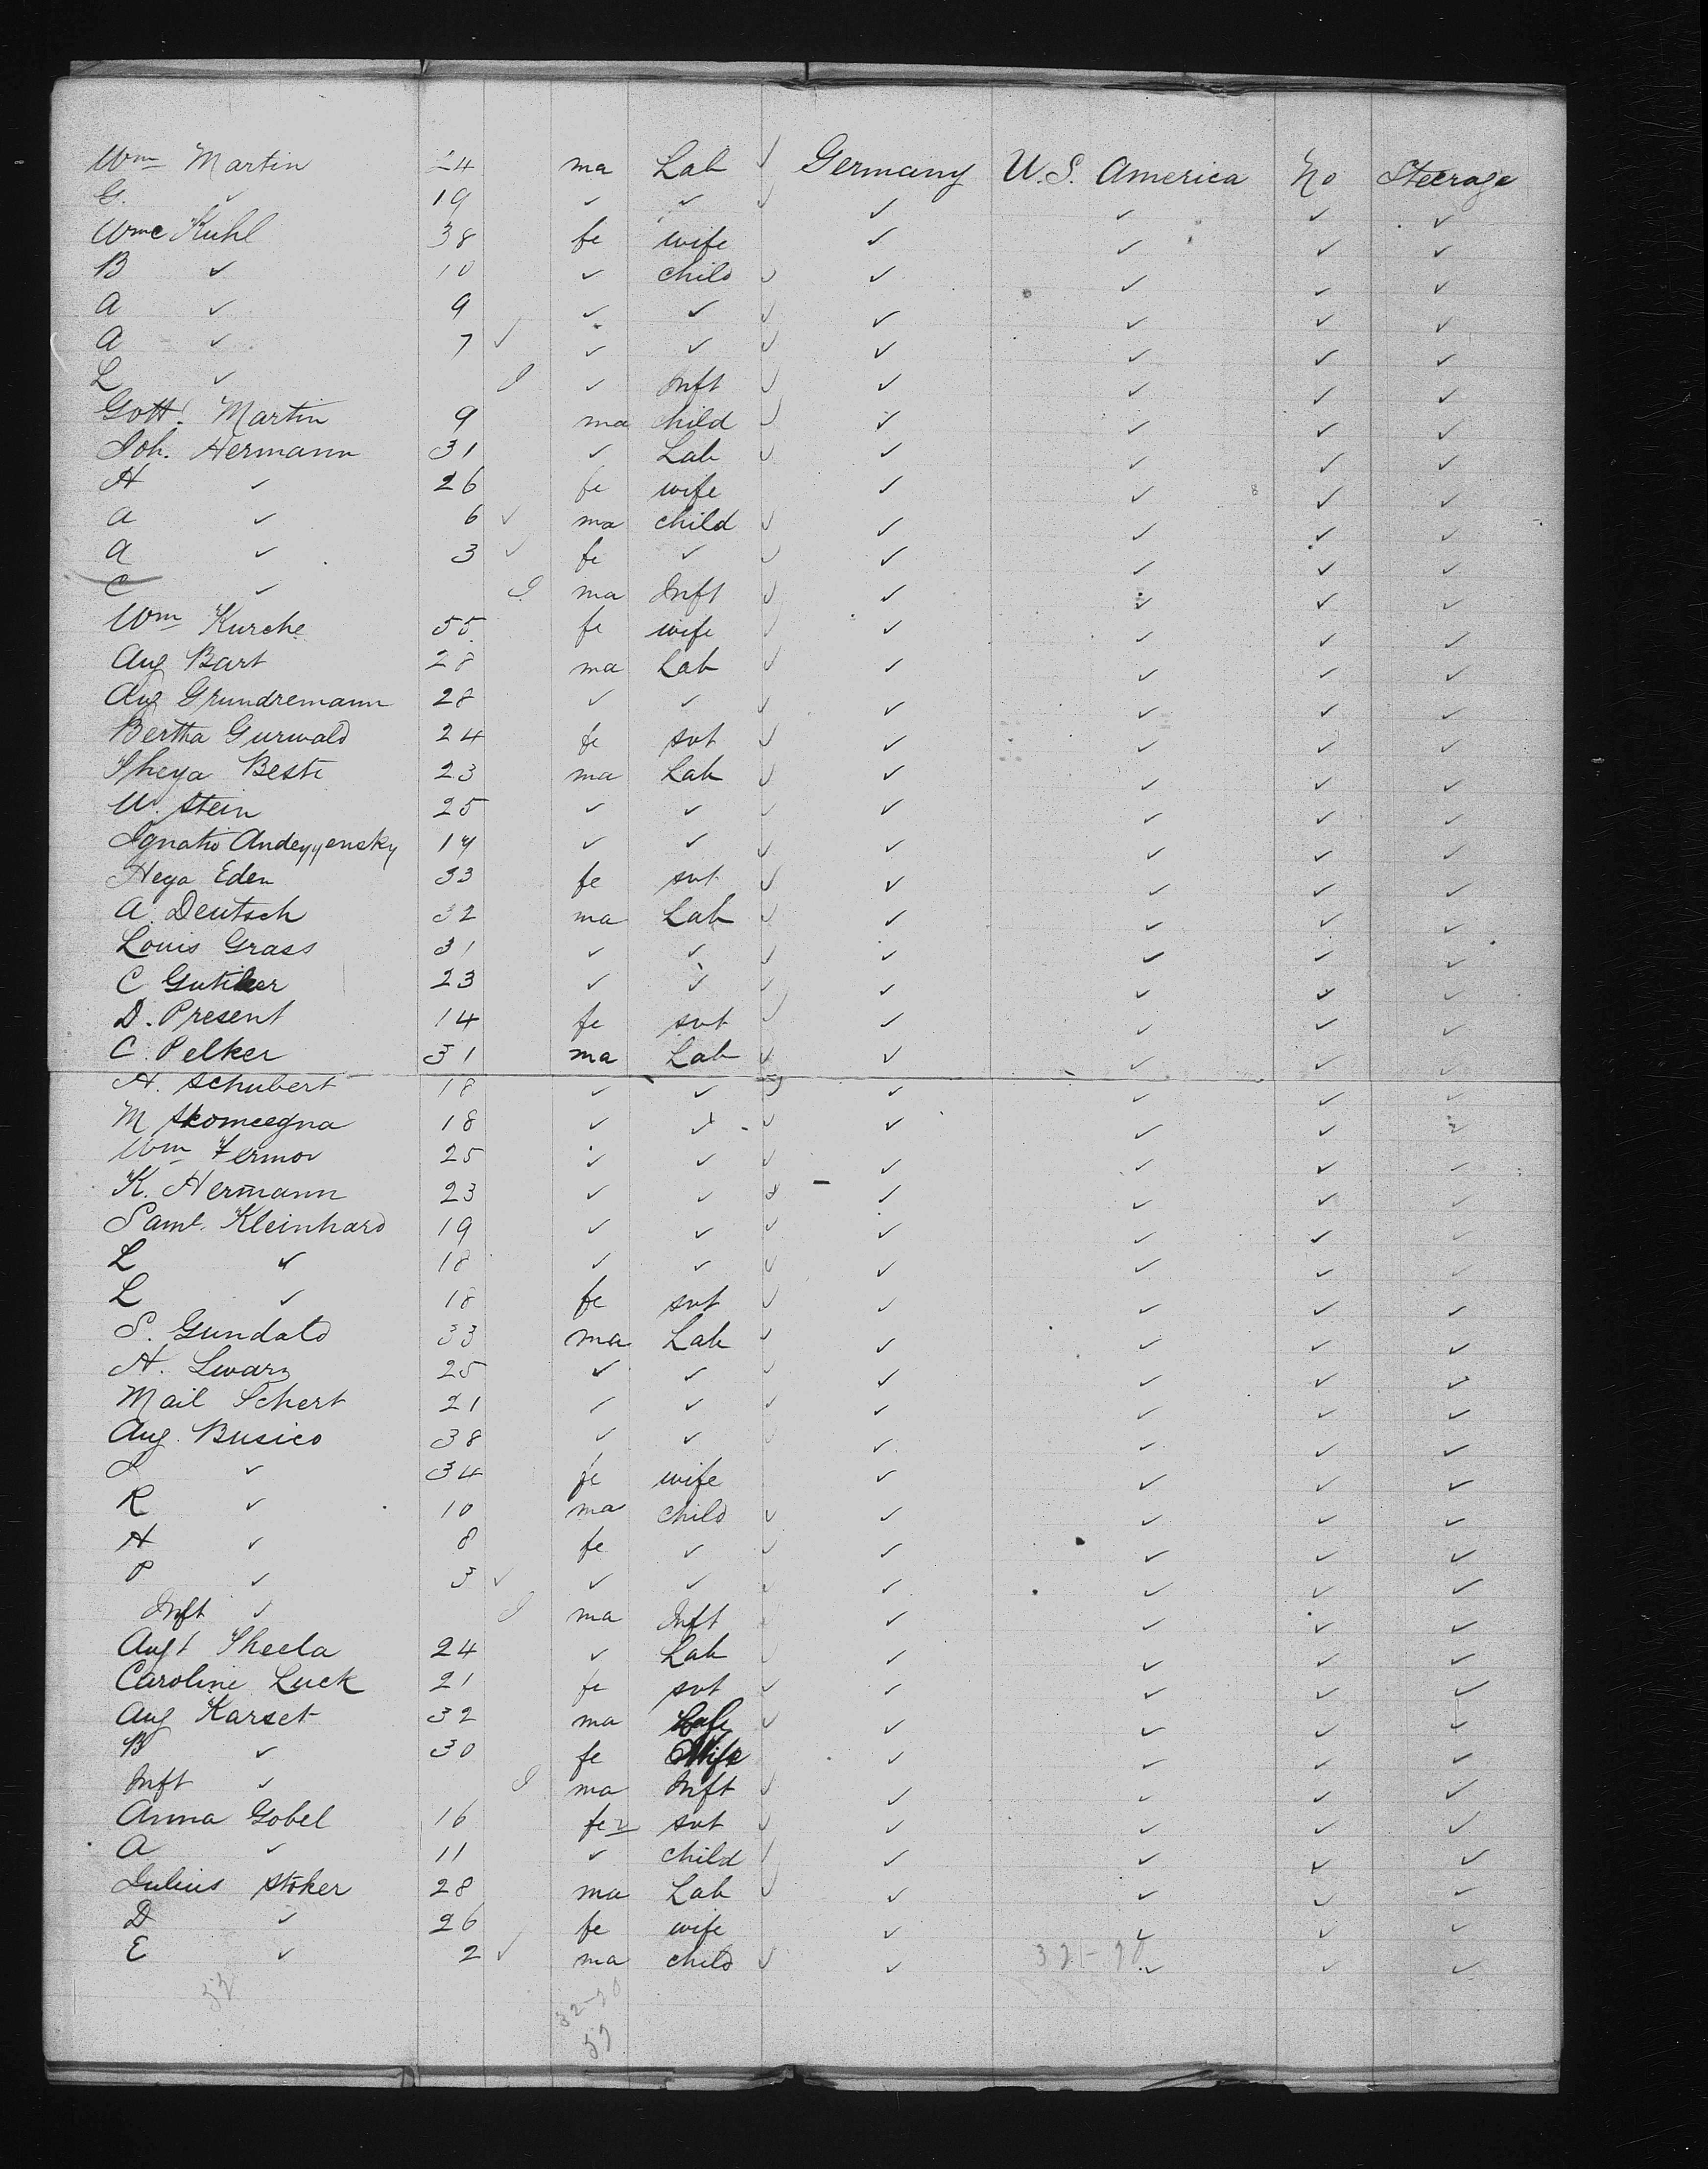 Wm Martin 24 ma Lab ✓ Germany U.S. America No Steerage
G. ✓ 19 ✓ ✓ ✓ ✓ ✓ ✓ ✓
Wme Kuhl 38 fe wife ✓ ✓ ✓ ✓
B ✓ 10 ✓ child ✓ ✓ ✓ ✓ ✓
A ✓ 9 ✓ ✓ ✓ ✓ ✓ ✓ ✓
A ✓ 7 ✓ ✓ ✓ ✓ ✓ ✓ ✓ ✓
L ✓ I ✓ Inft ✓ ✓ ✓ ✓ ✓
Gott. Martin 9 ma child ✓ ✓ ✓ ✓ ✓
Joh. Hermann 31 ✓ Lab ✓ ✓ ✓ ✓ ✓
H ✓ 26 fe wife ✓ ✓ ✓ ✓
A ✓ 6 ✓ ma child ✓ ✓ ✓ ✓ ✓
A ✓ 3 ✓ fe ✓ ✓ ✓ ✓ ✓ ✓
C ✓ I ma Inft ✓ ✓ ✓ ✓ ✓
Wm Kurche 55 fe wife ✓ ✓ ✓ ✓ ✓
Aug Bart 28 ma Lab ✓ ✓ ✓ ✓ ✓
Aug Grundremann 28 ✓ ✓ ✓ ✓ ✓ ✓ ✓
Bertha Gurwald 24 fe svt ✓ ✓ ✓ ✓ ✓
Theya Beste 23 ma Lab ✓ ✓ ✓ ✓ ✓
W. Stein 25 ✓ ✓ ✓ ✓ ✓ ✓ ✓
Ignatio Andeyyensky 14 ✓ ✓ ✓ ✓ ✓ ✓ ✓
Heya Eden 33 fe svt ✓ ✓ ✓ ✓ ✓
A. Deutsch 32 ma Lab ✓ ✓ ✓ ✓ ✓
Louis Grass 31 ✓ ✓ ✓ ✓ ✓ ✓ ✓
C Gutiker 23 ✓ ✓ ✓ ✓ ✓ ✓ ✓
D. Present 14 fe svt ✓ ✓ ✓ ✓ ✓
C. Pelker 31 ma Lab ✓ ✓ ✓ ✓ ✓
H. Schubert 18 ✓ ✓ ✓ ✓ ✓ ✓ ✓
M Skomeegna 18 ✓ ✓ ✓ ✓ ✓ ✓ ✓
Wm Fermor 25 ✓ ✓ ✓ ✓ ✓ ✓ ✓
K. Hermann 23 ✓ ✓ ✓ ✓ ✓ ✓ ✓
Saml. Kleinhard 19 ✓ ✓ ✓ ✓ ✓ ✓ ✓
L ✓ 18 ✓ ✓ ✓ ✓ ✓ ✓ ✓
L ✓ 18 fe svt ✓ ✓ ✓ ✓ ✓
S. Gundald 33 ma Lab ✓ ✓ ✓ ✓ ✓
H. Swarz 25 ✓ ✓ ✓ ✓ ✓ ✓ ✓
Mail Schert 21 ✓ ✓ ✓ ✓ ✓ ✓ ✓
Aug. Busico 38 ✓ ✓ ✓ ✓ ✓ ✓ ✓
✓ 34 fe wife ✓ ✓ ✓ ✓
R ✓ 10 ma child ✓ ✓ ✓ ✓ ✓
H ✓ 8 fe ✓ ✓ ✓ ✓ ✓ ✓
P ✓ 3 ✓ ✓ ✓ ✓ ✓ ✓ ✓ ✓
Inft ✓ I ma Inft ✓ ✓ ✓ ✓
Augt Sheela 24 ✓ Lab ✓ ✓ ✓ ✓ ✓
Caroline Luck 21 fe svt ✓ ✓ ✓ ✓ ✓
Aug Karset 32 ma Lab ✓ ✓ ✓ ✓ ✓
B ✓ 30 fe Wife ✓ ✓ ✓ ✓
Inft ✓ I ma Inft ✓ ✓ ✓ ✓ ✓
Anna Gobel 16 fe svt ✓ ✓ ✓ ✓ ✓
A ✓ 11 ✓ child ✓ ✓ ✓ ✓ ✓
Julius Stoker 28 ma Lab ✓ ✓ ✓ ✓ ✓
D ✓ 26 fe wife ✓ ✓ ✓ ✓
E ✓ 2 ✓ ma child ✓ ✓ ✓ ✓ ✓